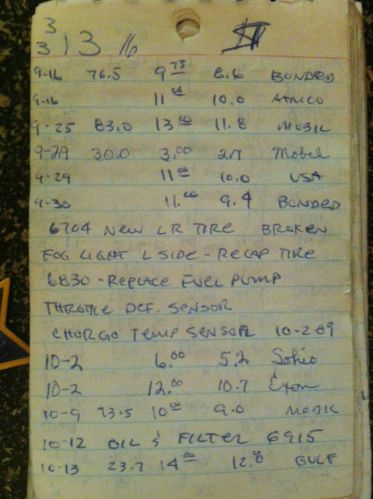 3
3 13 16
9-16 76.5 9 75 8.6 BONDED
9-16 11 10.0 AMICO
9-25 83.0 13 00 11.8 MOBIL
9-29 30.0 3.00 2.7 Mobil
9-29 11 00 10.0 USA
9-30 11.00 9.4 BONDED
6704 NEW LR TIRE BROKEN
FOG LIGHT L SIDE - RECAP TIRE
6830 - REPLACE FUEL PUMP
THROTTLE DEF. SENSOR
CHORGO TEMP SENSOR 10-2-89
10-2 6.00 5.2 Sohio
10-2 12.00 10.7 Exon
10-9 23.5 10 00 9.0 MOBIL
10-12 OIL & FILTER 6915
10-13 23.7 14 00 12.0 GULF